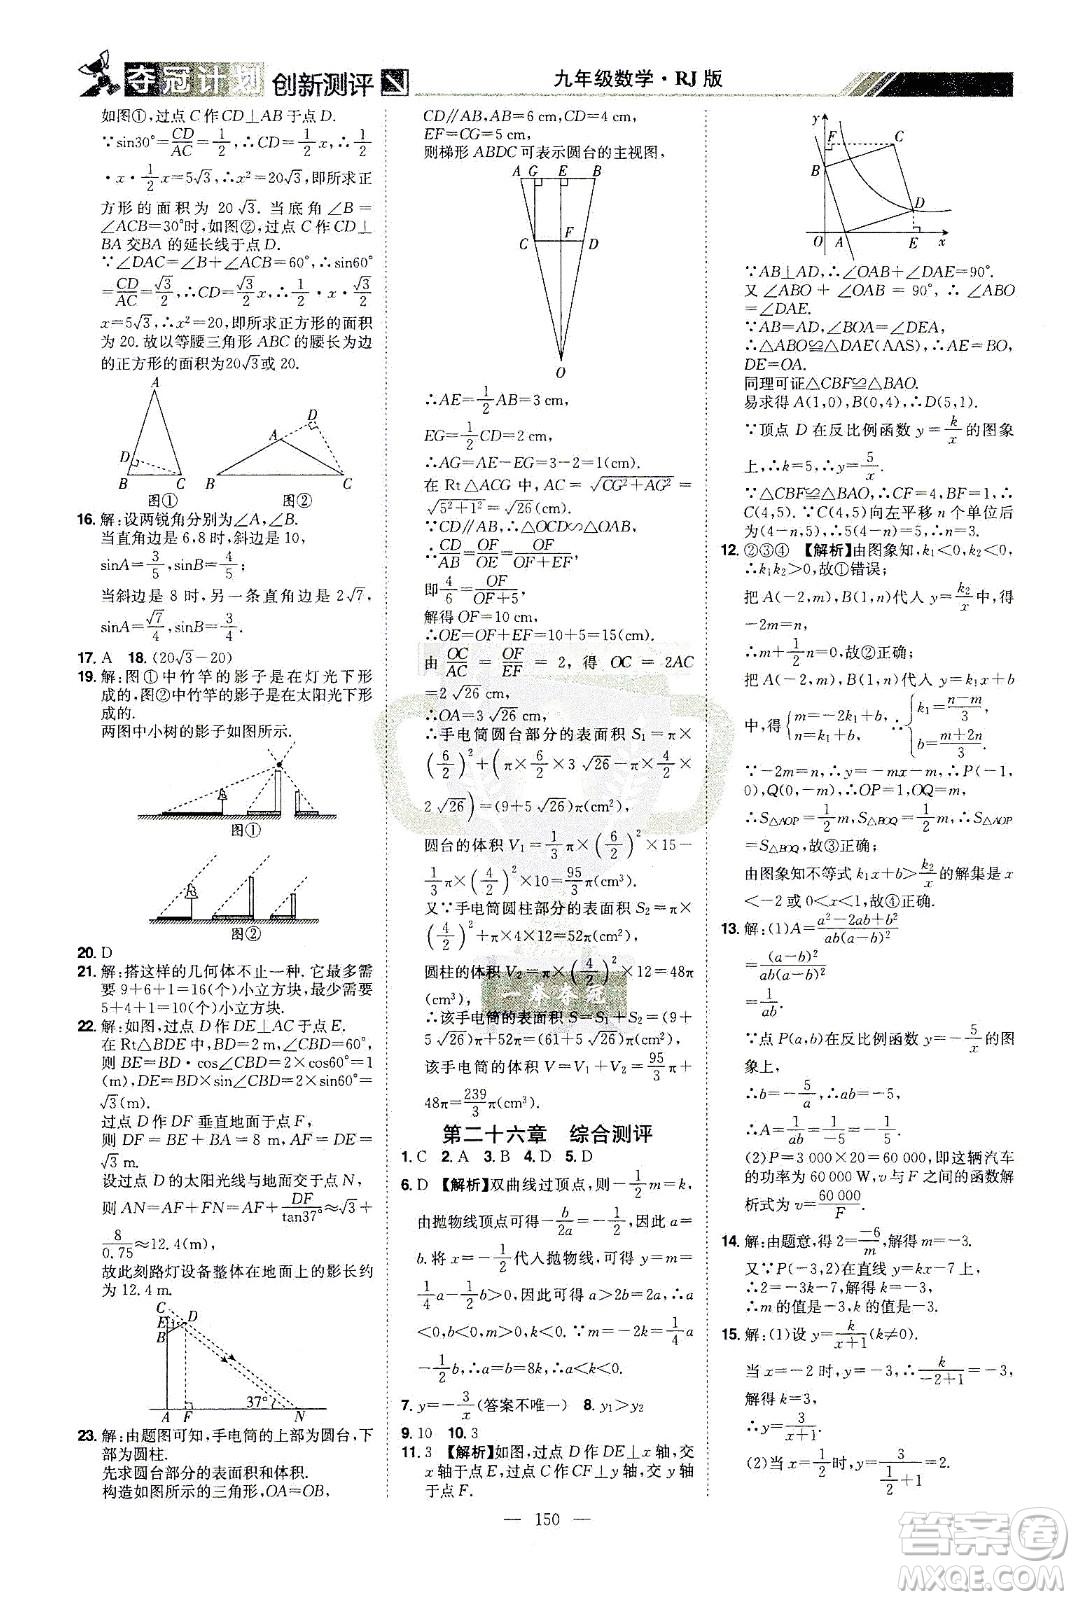 夺冠计划 创新测评
九年级数学·RJ版
如图①,过点C作CD⊥AB于点D.
∵sin30°=CD/AC=1/2,∴CD=1/2x,∴1/2
·x·1/2x=5√3,∴x²=20√3,即所求正
方形的面积为20√3.当底角∠B=
∠ACB=30°时,如图②,过点C作CD⊥
BA交BA的延长线于点D.
∵∠DAC=∠B+∠ACB=60°,∴sin60°
=CD/AC=√3/2,∴CD=√3/2x,∴1/2·x·√3/2
x=5√3,∴x²=20,即所求正方形的面积
为20.故以等腰三角形ABC的腰长为边
的正方形的面积为20√3或20.
A
D
B C
图①
D
A
B C
图②
16.解:设两锐角分别为∠A,∠B.
当直角边是6,8时,斜边是10,
sinA=3/5,sinB=4/5;
当斜边是8时,另一条直角边是2√7,
sinA=√7/4,sinB=3/4.
17.A 18.(20√3-20)
19.解:图①中竹竿的影子是在灯光下形
成的,图②中竹竿的影子是在太阳光下形
成的.
两图中小树的影子如图所示.
图①
图②
20.D
21.解:搭这样的几何体不止一种.它最多需要
9+6+1=16(个)小立方块,最少需要
5+4+1=10(个)小立方块.
22.解:如图,过点D作DE⊥AC于点E.
在Rt△BDE中,BD=2m,∠CBD=60°,
则BE=BD·cos∠CBD=2×cos60°=1
(m),DE=BD·sin∠CBD=2×sin60°=
√3(m).
过点D作DF垂直地面于点F,
则DF=BE+BA=8m,AF=DE=
√3m.
设过点D的太阳光线与地面交于点N,
则AN=AF+FN=AF+DF/tan37°≈√3+
8/0.75≈12.4(m).
故此刻路灯设备整体在地面上的影长约
为12.4m.
C
E D
B
37°
A F N
23.解:由题图可知,手电筒的上部为圆台,下
部为圆柱.
先求圆台部分的表面积和体积.
构造如图所示的三角形,OA=OB,
CD∥AB,AB=6cm,CD=4cm,
EF=CG=5cm,
则梯形ABDC可表示圆台的主视图,
A G E B
C F D
O
∴AE=1/2AB=3cm,
EG=1/2CD=2cm,
∴AG=AE-EG=3-2=1(cm),
在Rt△ACG中,AC=√(CG²+AG²)=
√(5²+1²)=√26(cm).
∵CD∥AB,∴△OCD∽△OAB,
∴CD/AB=OF/OE=OF/(OF+EF),
即4/6=OF/(OF+5),
解得OF=10(cm),
∴OE=OF+EF=10+5=15(cm).
由OC/AC=OF/EF=10/5=2,得OC=2AC
=2√26(cm),
∴OA=3√26(cm),
∴手电筒圆台部分的表面积S₁=π×
(6/2)²+(π×6/2×3√26-π×4/2×
2√26)=(9+5√26)π(cm²),
圆台的体积V₁=1/3π×(6/2)²×15-
1/3π×(4/2)²×10=95/3π(cm³).
又∵手电筒圆柱部分的表面积S₂=π×
(4/2)²+π×4×12=52π(cm²),
圆柱的体积V₂=π×(4/2)²×12=48π
(cm³).
∴该手电筒的表面积S=S₁+S₂=(9+
5√26)π+52π=(61+5√26)π(cm²),
该手电筒的体积V=V₁+V₂=95/3π+
48π=239/3π(cm³).
一举夺冠
第二十六章 综合测评
1.C 2.A 3.B 4.D 5.D
6.D 【解析】双曲线过顶点,则-1/2m=k,
由抛物线顶点可得-b/2a=-1/2,故a=
b.将x=-1/2代入抛物线,可得m=
1/4a-1/2b=-1/4a>0,故可得a<0,故
b<0,m>0,k<0.∵m=-2k=1/4a
-1/2b,∴a=b=8k,故选D.
7.y=-3/x(答案不唯一) 8.y₁>y₂
9.10 10.3
11.3 【解析】如图,过点D作DE⊥x轴,交
x轴于点E,过点C作CF⊥y轴,交y
轴于点F.
y
F C
B
D
O A E x
∵AB⊥AD,∴∠OAB+∠DAE=90°.
又∠ABO+∠OAB=90°,∴∠ABO=
∠DAE.
∵AB=AD,∠BOA=∠DEA,
∴△ABO≌△DAE(AAS),∴AE=BO,
DE=OA.
同理可证△CBF≌△BAO.
易求得A(1,0),B(0,4),∴D(5,1).
∵顶点D在反比例函数y=k/x的图象
上,∴k=5,∴y=5/x.
∵△CBF≌△BAO,∴CF=4,∴
C(4,5).∵C(4,5)向左平移n个单位后
为(4-n,5),∴5(4-n)=5,∴n=3.
12.②③④ 【解析】由图象知,k₁<0,k₂<0,
∴k₁k₂>0,故①错误;
把A(-2,m),B(1,n)代入y=k₂/x中得
-2m=n,
∴m+1/2n=0,故②正确;
把A(-2,m),B(1,n)代入y=k₁x+b
中,得{m=-2k₁+b, n=k₁+b,∴{k₁=(n-m)/3, b=(m+2n)/3,
∵-2m=n,∴y=-mx-m,∴P(-1,
0),Q(0,-m),∴OP=1,OQ=m,∴
S△AOP=1/2m,S△BOQ=1/2m,∴S△AOP
=S△BOQ,故③正确;
由图象知不等式k₁x+b>k₂/x的解集是x
<-2或0<x<1,故④正确.
13.解:(1)A=(a²-2ab+b²)/ab(a-b)²
=(a-b)²/ab(a-b)²
=1/ab.
∵点P(a,b)在反比例函数y=-5/x的图
象上,
∴b=-5/a,∴ab=-5,
∴A=1/ab=1/-5=-1/5.
(2)P=3 000×20=60 000,即这辆汽车
的功率为60 000W,v与F之间的函数解
析式为v=60 000/F.
14.解:由题意,得2=-6/m,解得m=-3.
又∵P(-3,2)在直线y=kx-7上,
∴2=-3k-7,∴k=-3,
∴m的值是-3,k的值是-3.
15.解:(1)设y=k/(x+1)(k≠0).
当x=-2时,y=-3,∴k/(-2+1)=-3,
解得k=3,
∴y=3/(x+1).
(2)当x=1/2时,y=3/(1/2+1)=2.
— 150 —
答案圈
MXQE.COM